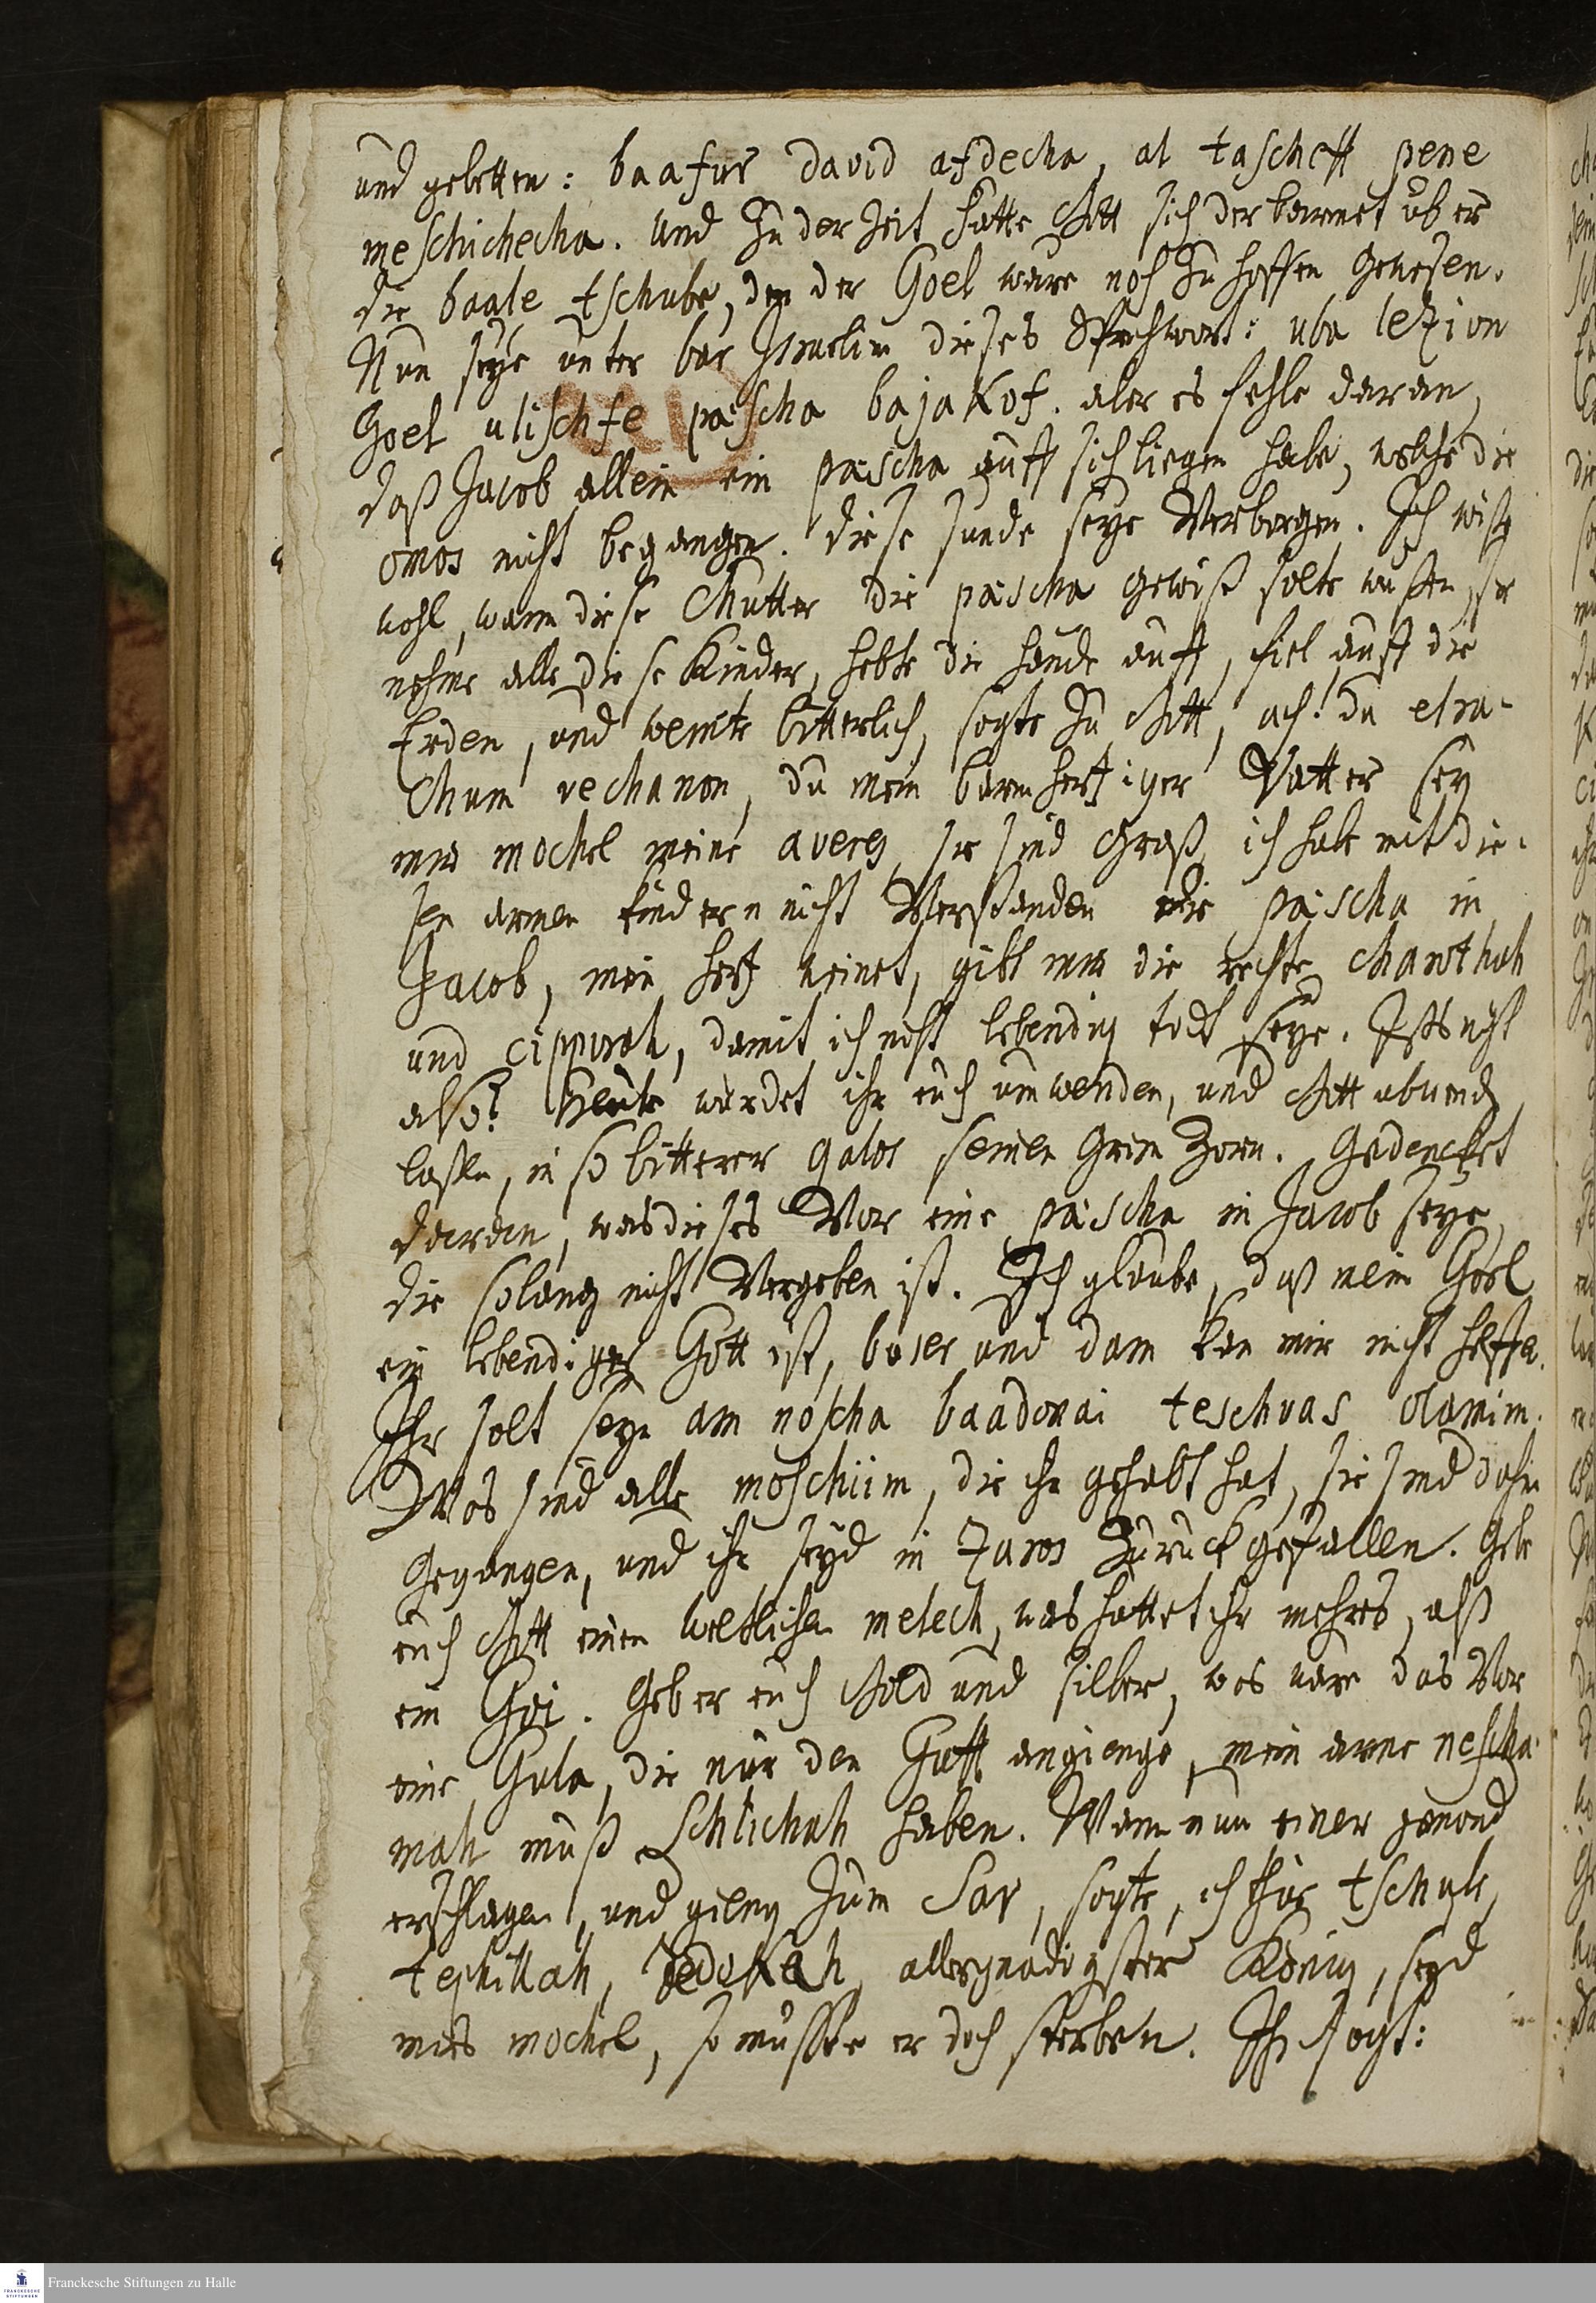 und gebetten: baafur david afdecha, al tascheff pene
meschichecha. und zu der Zeit hatte Gott sich derbarmet über
die baale tschube, den der Goel ware noch zu hoffen gewesen.
Nun seye unter bar Israelim dieses Sprichwort: uba lezion
Goel ulischfe päscha bajakof. aber es fehle daran,
daß Jacob allein ein päscha auff sich liegen habe, welche die
omos nicht begangen. diese sunde seye Verborgen. Ich wiße
wohl, wann diese Mutter die päscha gewiß solte wußen, sie
nehme alle diese Kinder, hebte die hände auff, fiel auff die
Erden, und weinte bitterlich, sagte zu Gott, ach! du elra-
chum vechanon, du mein barmhertziger Vatter sey
mir mochel meine averes, sie sind Groß, ich habe mit die-
sen armen kindern nicht Verstanden die päscha in
Jacob, mein hertz weinet, gibt mir die rechte charothah
und cippurah, damit ich nicht lebendig todt seye. Ists nicht
also? Heute würdet ihr euch umwenden, und Gott abwend
laßen, in so bitterer galos seinen Grim Zorn. Gedencket
daran, was dieses Vor eine päscha in Jacob seye,
die solang nicht Vergeben ist. Ich glaube, daß mein Goel
ein lebendiger Gott ist, baser und dam kan mir nicht helffen.
Ihr solt seyn am noscha baadonai teschuas olamim.
Was sind alle moschiim, die ihr gehabt hat, sie sind dahin
Gegangen, und ihr seyd in zaros zurück gefallen. Gebe
euch Gott einen weltlichen melech, was hattet ihr mehres, alß
ein Goi. Geb er euch Gold und silber, was ware das Vor
eine Gula, die nur den Guff angienge, mein arme nescha-
mah muß Schlichah haben. Wann nun einer jemand
erschlagen, und gieng zum Sar, sagte, ich thue tschube,
tephillah, Zedokah, allergnädigster König, seyd
mir mochel, so müsste er doch sterben. Ihr sagt:
Franckesche Stiftungen zu Halle